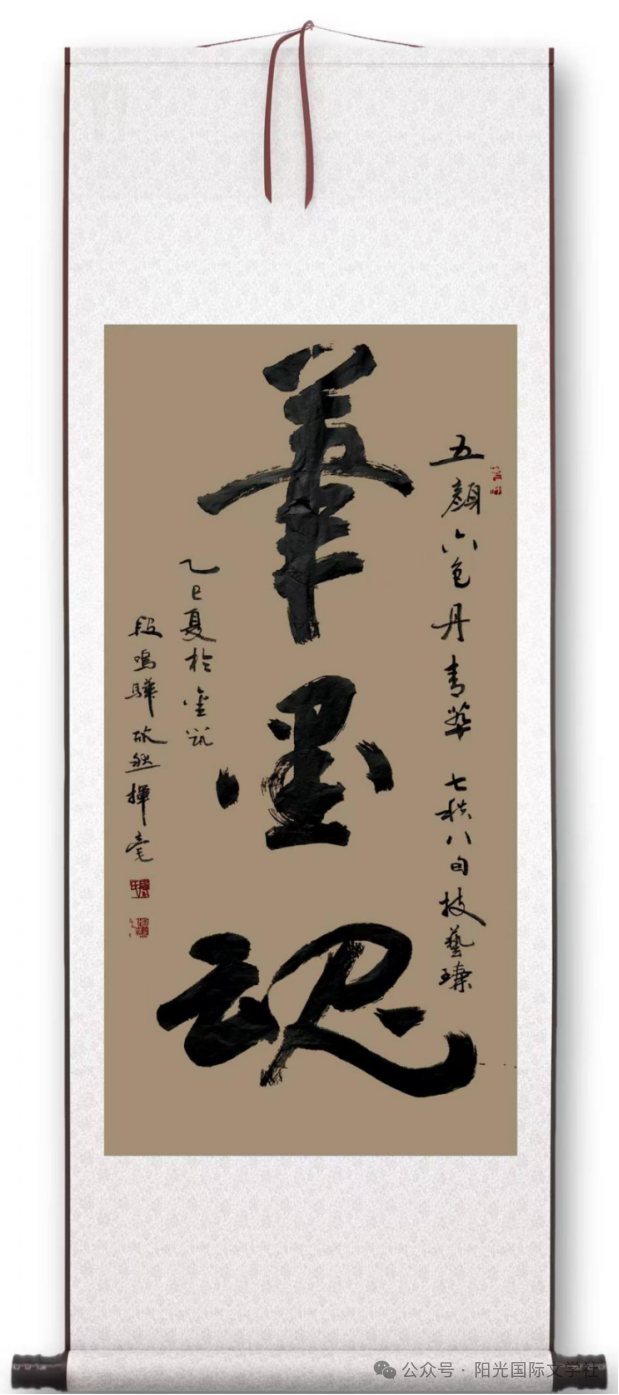 五顏六色丹青 七秩八旬技藝臻
筆墨魂
乙巳夏於金筑
段鳴驊欣然揮毫
公众号 · 阳光国际文学社